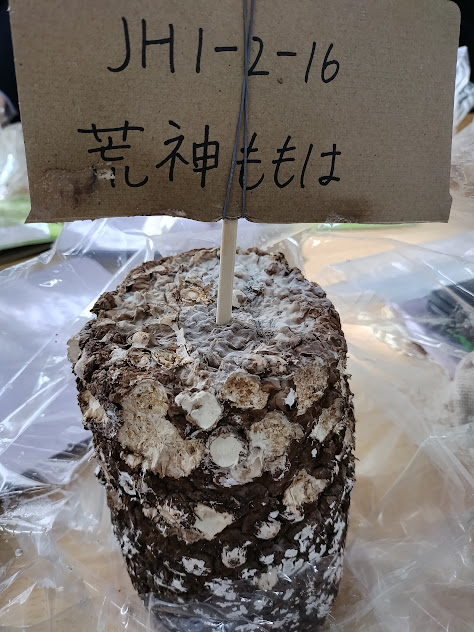 JH1-2-16
荒神ももは